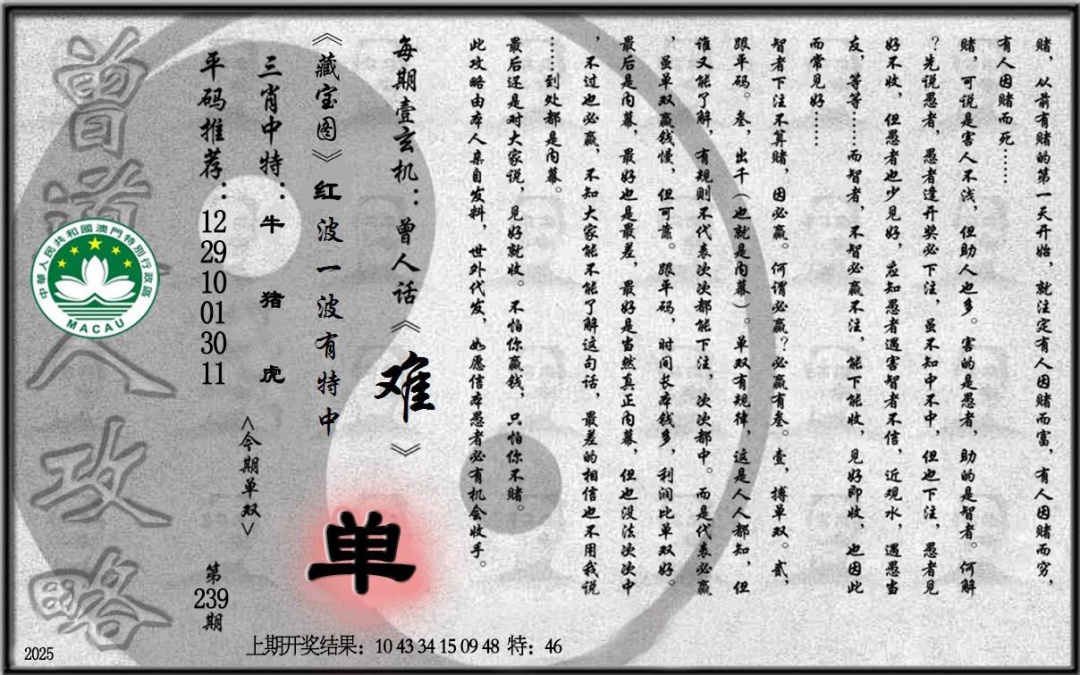 赌，从前有赌的第一天开始，就注定有人因赌而富，有人因赌而穷，
有人因赌而死……
赌，可说是害人不浅，但助人也多。害的是愚者，助的是智者。何解
？先说愚者，愚者逢开奖必下注，虽不知中不中，但也下注，愚者见
好不收，但愚者也少见好，应知愚者遇害智者不信，近观水，遇愚当
友，等等……而智者，不智必赢不注，能下能收，见好即收，也因此
而常见好……
智者下注不算赌，因必赢。何谓必赢？必赢有叁。壹，搏单双。贰，
跟单码。叁，出千（也就是内幕）。单双有规律，这是人人都知，但
谁又能了解，有规则不代表次次都能下注，次次都中。而是代表必赢
，虽单双赢钱慢，但可靠。跟单码，时间长本钱多，利润比单双好。
最后是内幕，最好也是最差，最好是当然真正内幕，但也没法次次中
，不过也必赢，不知大家能不能了解这句话，最差的相信也不用我说
……到处都是内幕。
最后还是对大家说，见好就收。不怕你赢钱，只怕你不赌。
此攻略由本人亲自发料，世外代发，如愿信本愚者必有机会收手。
每期壹玄机：曾人话《难》
《藏宝图》红波一波有特中
单
三肖中特：牛 猪 虎
<今期单双>
平码推荐：12 29 10 01 30 11
第239期
曾道人攻略
中華人民共和國澳門特別行政區
MACAU
上期开奖结果：10 43 34 15 09 48 特：46
2025